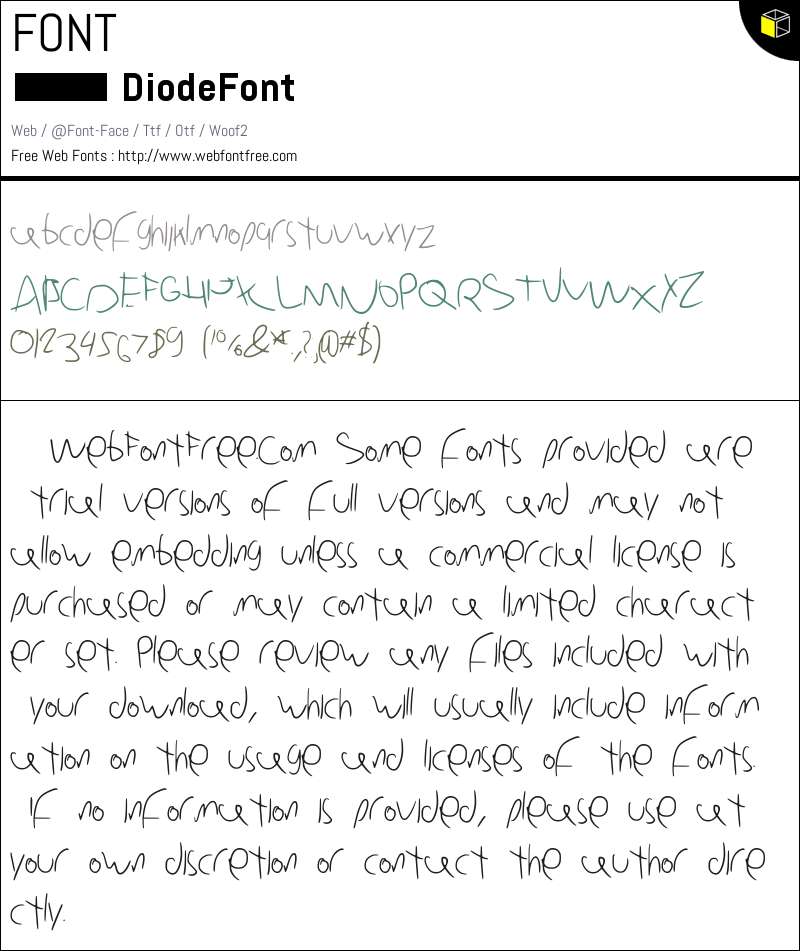 FONT
DiodeFont
Web / @Font-Face / Ttf / Otf / Woof2
Free Web Fonts : http://www.webfontfree.com
abcdefghijklmnopqrstuvwxyz
ABCDEFGHIJKLMNOPQRSTUVWXYZ
0123456789 (10%&*.,?,@#$)
WebFontFree.Com Some fonts provided are
trial versions of full versions and may not
allow embedding unless a commercial license is
purchased or may contain a limited charact
er set. Please review any files included with
your download, which will usually include inform
ation on the usage and licenses of the fonts.
If no information is provided, please use at
your own discretion or contact the author dire
ctly.